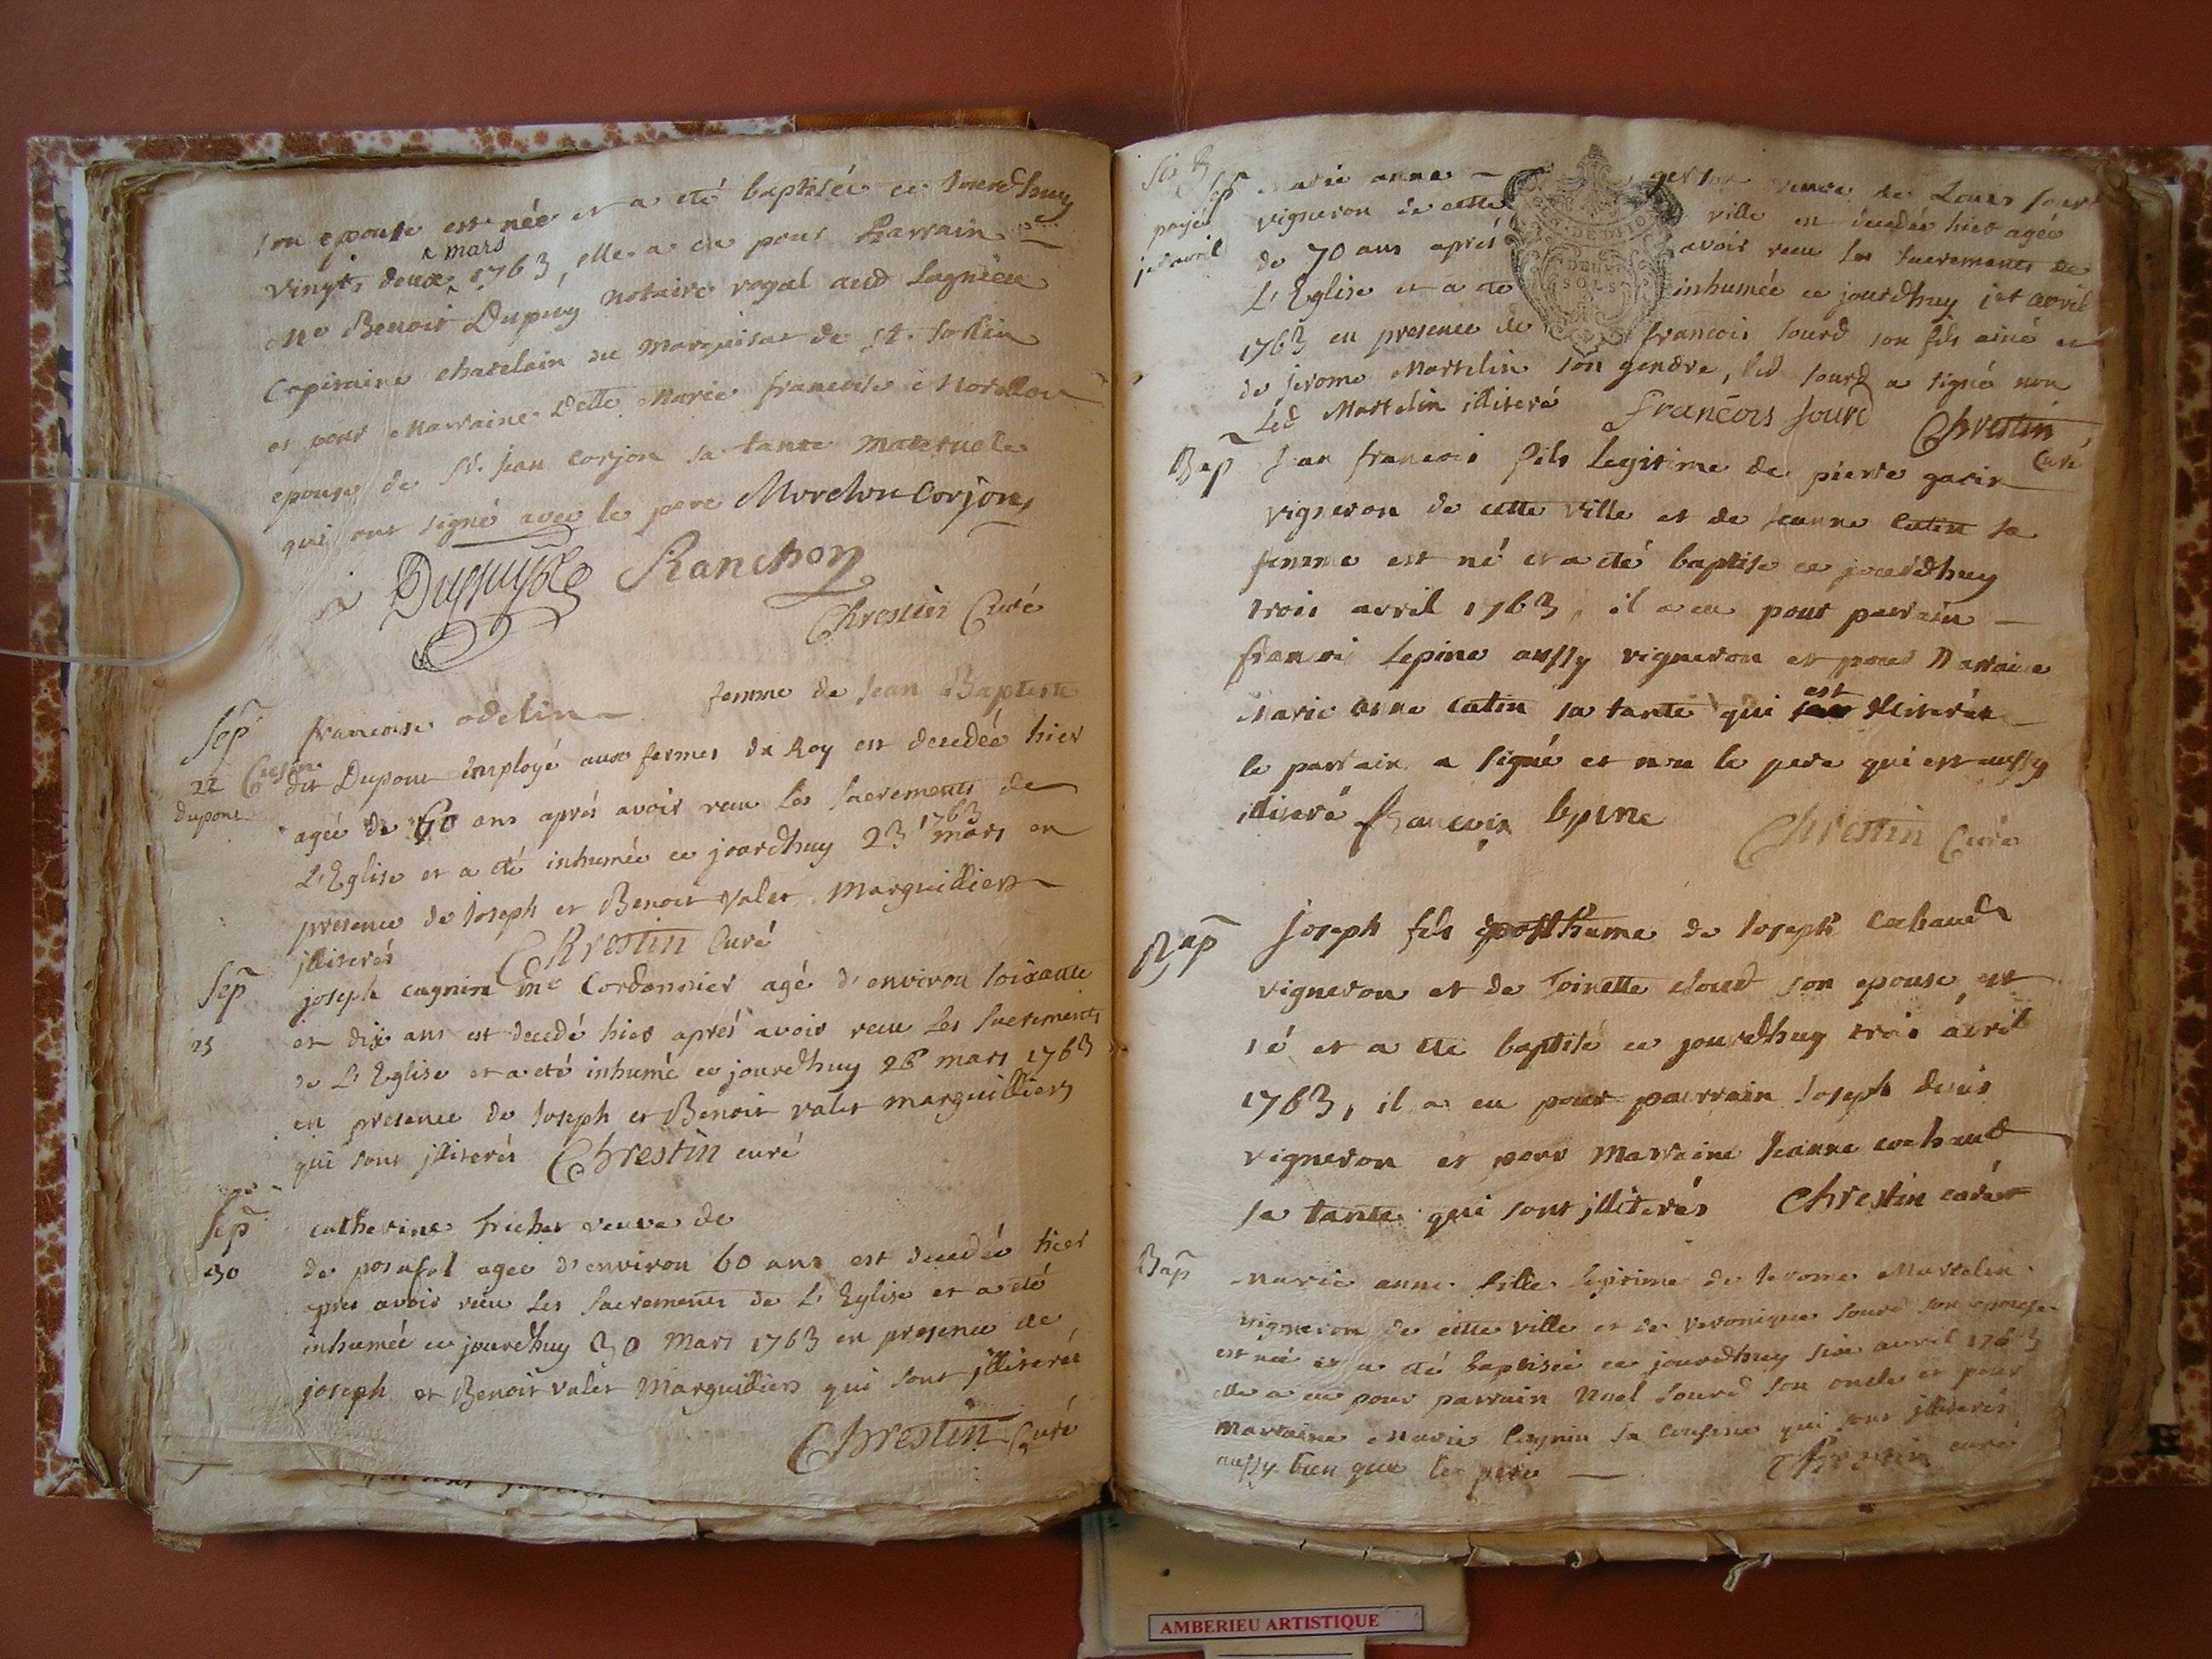 son epouse est née et a eté baptisée ce jourdhuy
vingts deux mars 1763, elle a eu pour Parrain
Me Benoit Dupuy notaire royal aud Lagnieu
Capitaine chatelain du Marquisat de St. Sorlin
et pour Marraine Delle Marie francoise Morellon
epouse de Sr. Jean Corjon sa tante maternelle
qui ont signé avec le pere Morelon Corjon
Dupuy Ranchon
Chrestin Curé
Sep francoise odelin femme de Jean Baptiste
22 dit Dupont employé aux fermes du Roy est decedée hier
Dupont agée de 60 ans aprés avoir receu les Sacrements de
L'Eglise et a eté inhumée ce jourdhuy 23 mars 1763 en
presence de Joseph et Benoit Valet Marguilliers
illiterés Chrestin Curé
Sep joseph cagnin me Cordonnier agé d'environ soixante
25 et dix ans est decedé hier aprés avoir receu les Sacrements
de L'Eglise et a eté inhumé ce jourdhuy 26 mars 1763
en presence de Joseph et Benoit valet marguilliers
qui sont jlliterés Chrestin curé
Sep catherine veuve de
30 de agee d'environ 60 ans est decedée hier
apres avoir receu les Sacrements de L'Eglise et a eté
inhumée ce jourdhuy 30 Mars 1763 en presence de
joseph et Benoit valet Marguilliers qui sont jlliterés
Chrestin Curé
Sep Marie anne veuve de Louis Sourd
vigneron de cette ville est decedée hier agée
jer avril de 70 ans aprés avoir receu les Sacrements de
L'Eglise et a eté inhumée ce jourdhuy jer avril
1763 en presence de francois Sourd son fils ainé et
de jerome Martelin son gendre, led Sourd a signé non
Led Martelin illiteré francois Sourd Chrestin
Curé
DEUX
SOLS
Bap Jean francois fils Legitime de pierre
vigneron de cette ville et de Jeanne Catin sa
femme est né et a eté baptise ce jourdhuy
trois avril 1763, il a eu pour parrain
francois Lepine aussy vigneron et pour Marraine
Marie anne Catin sa tante qui est illiterée
le parrain a signé et non le pere qui est aussy
illiteré francois lepine Chrestin Curé
Bap Joseph fils posthume de Joseph Cochaud
vigneron et de Toinette Sourd son epouse est
né et a eté baptisé ce jourdhuy trois avril
1763, il a eu pour parrain Joseph
vigneron et pour Marraine Jeanne cochaud
sa tante qui sont jlliterés Chrestin curé
Bap Marie anne fille legitime de Jerome Martelin
vigneron de cette ville et de veronique Sourd son epouse
est née et a eté baptisée ce jourdhuy six avril 1763
elle a eu pour parrain Noel Sourd son oncle et pour
Marraine Marie Cagnin sa cousine qui sont jlliterés
aussy bien que le pere Chrestin curé
AMBERIEU ARTISTIQUE